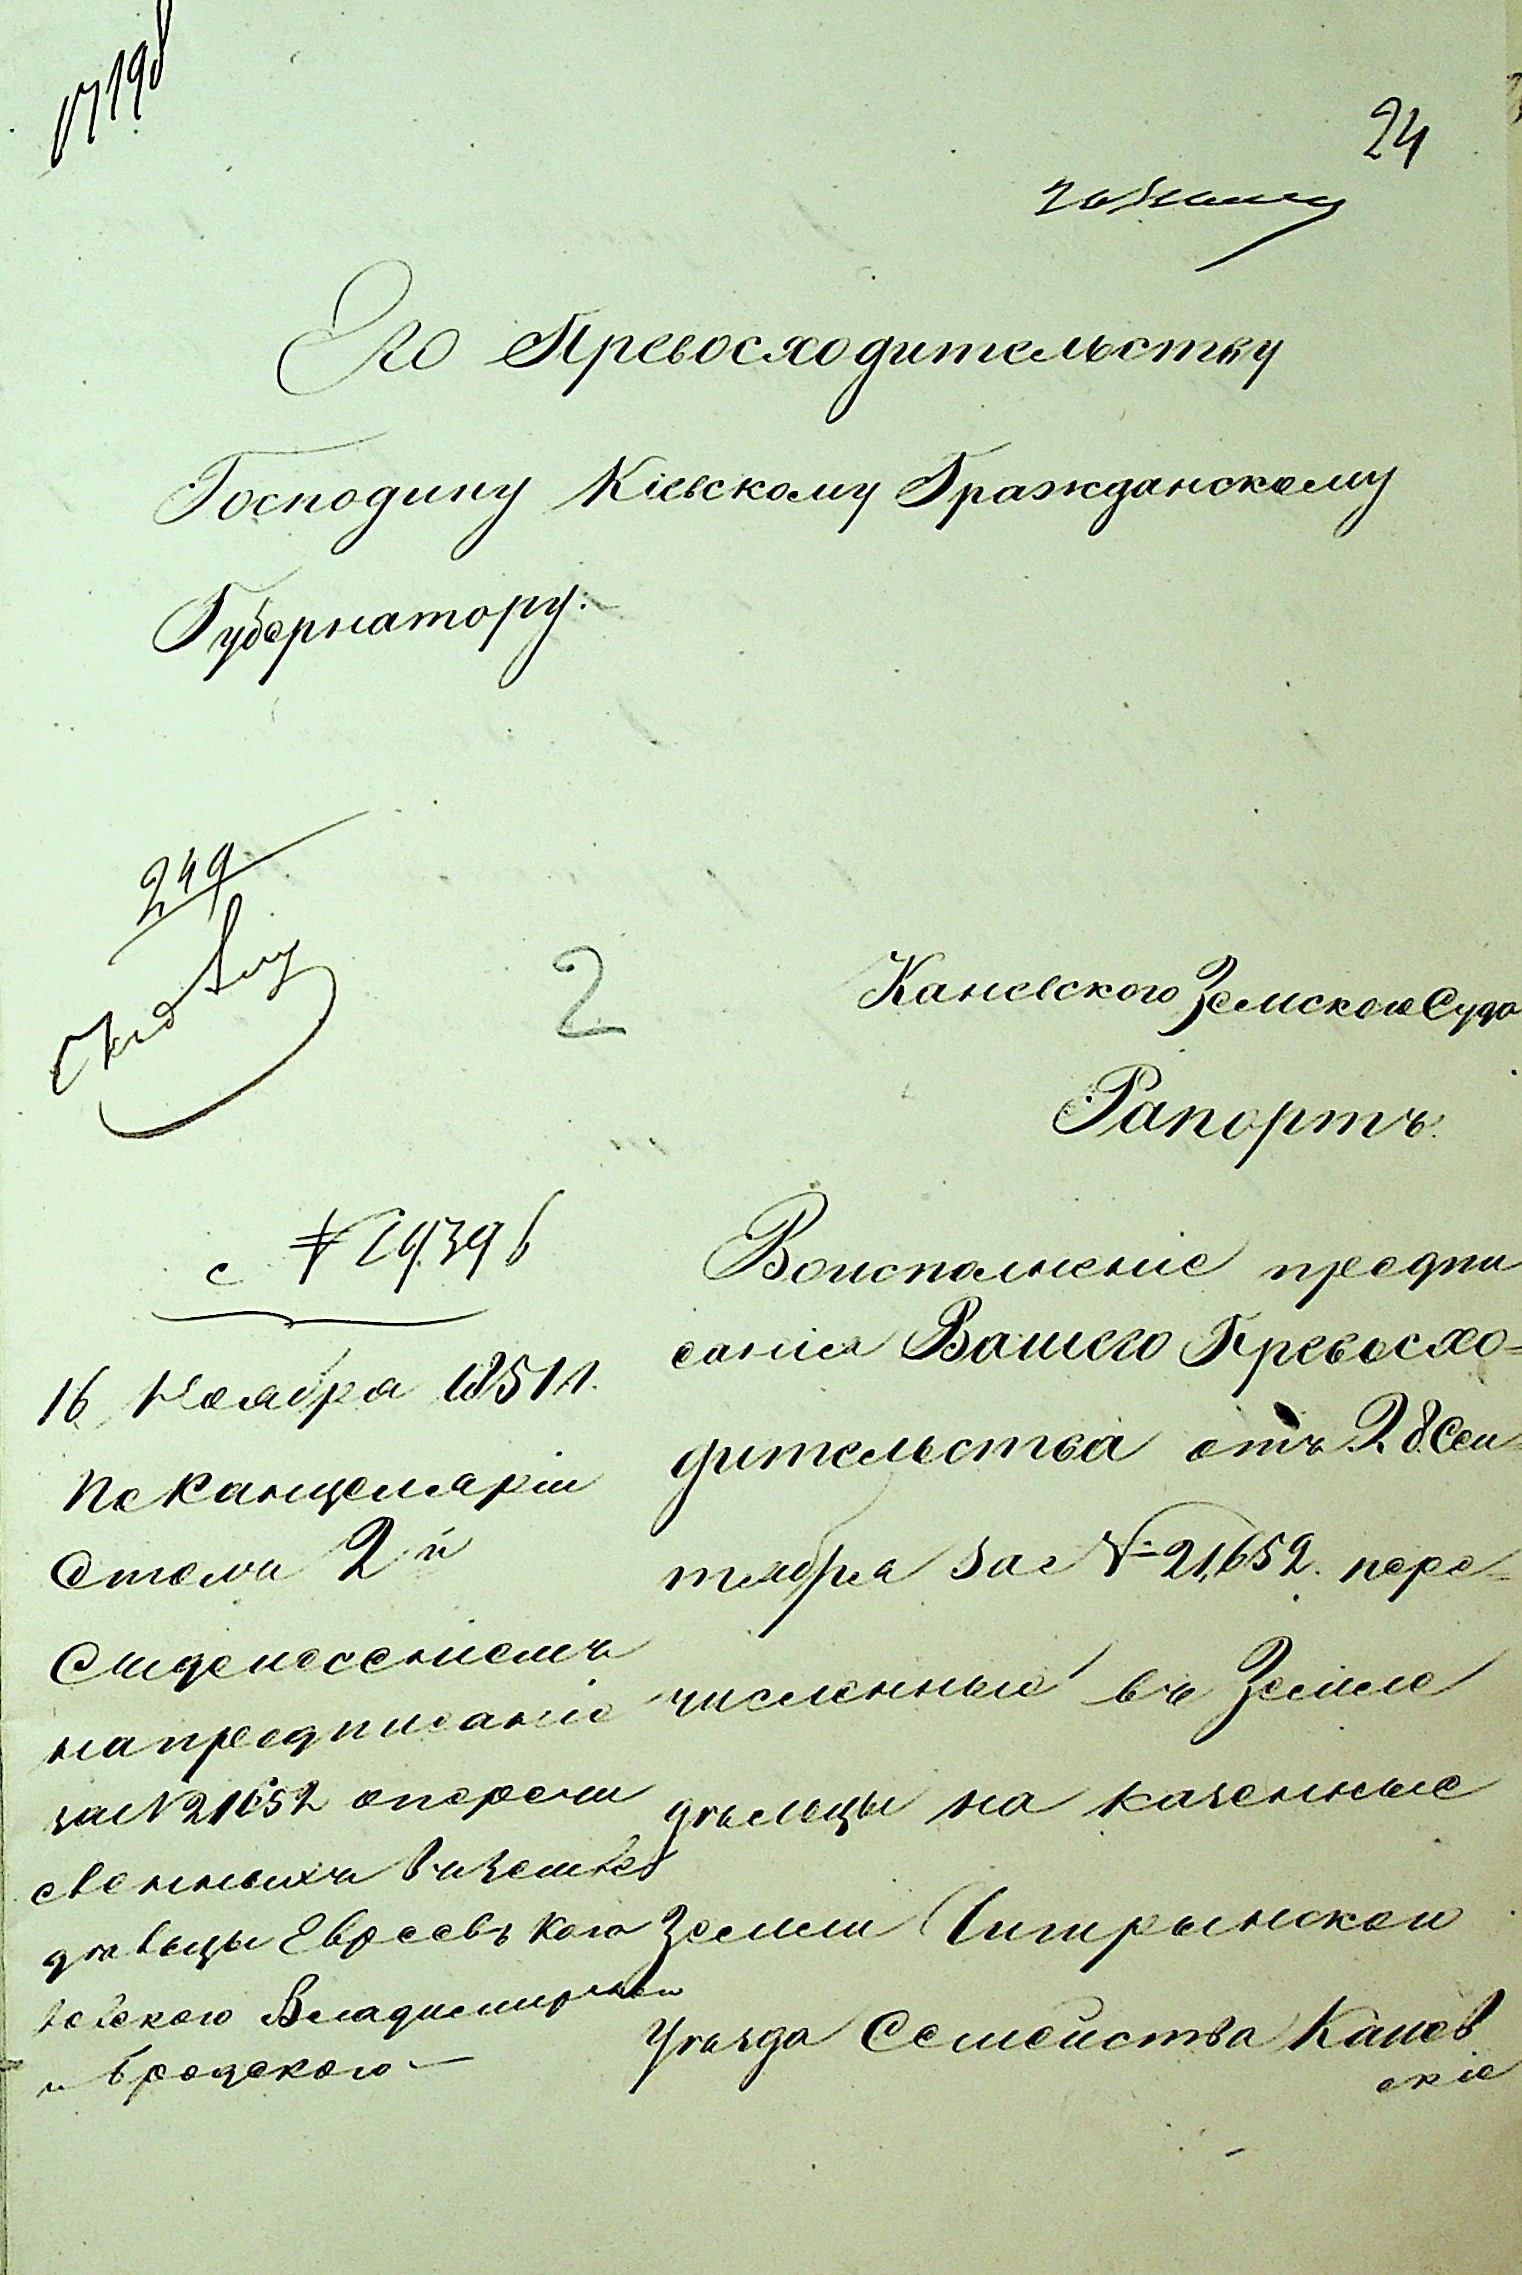 17198
24
Его Превосходительству
Господину Кіевскому Гражданскому
Губернатору.
249
2
Каневскаго Земскаго Суда
Рапортъ.
с № 19396
16 Ноября 1851 г.
По Канцеляріи
Стола 2й
Съ донесеніемъ
на предписаніе
за № 21652 о перечи
сленныхъ въ земле
дѣльцы Евреевъ Кого
товского Владимирского
и Бродского
Во исполненіе предпи
санія Вашего Превосхо-
дительства отъ 28 Сен-
тября за № 21,652. пере-
численные въ Земле
дѣльцы на казенные
Земли Чигрынского
Уѣзда Семейства Канев
скіе